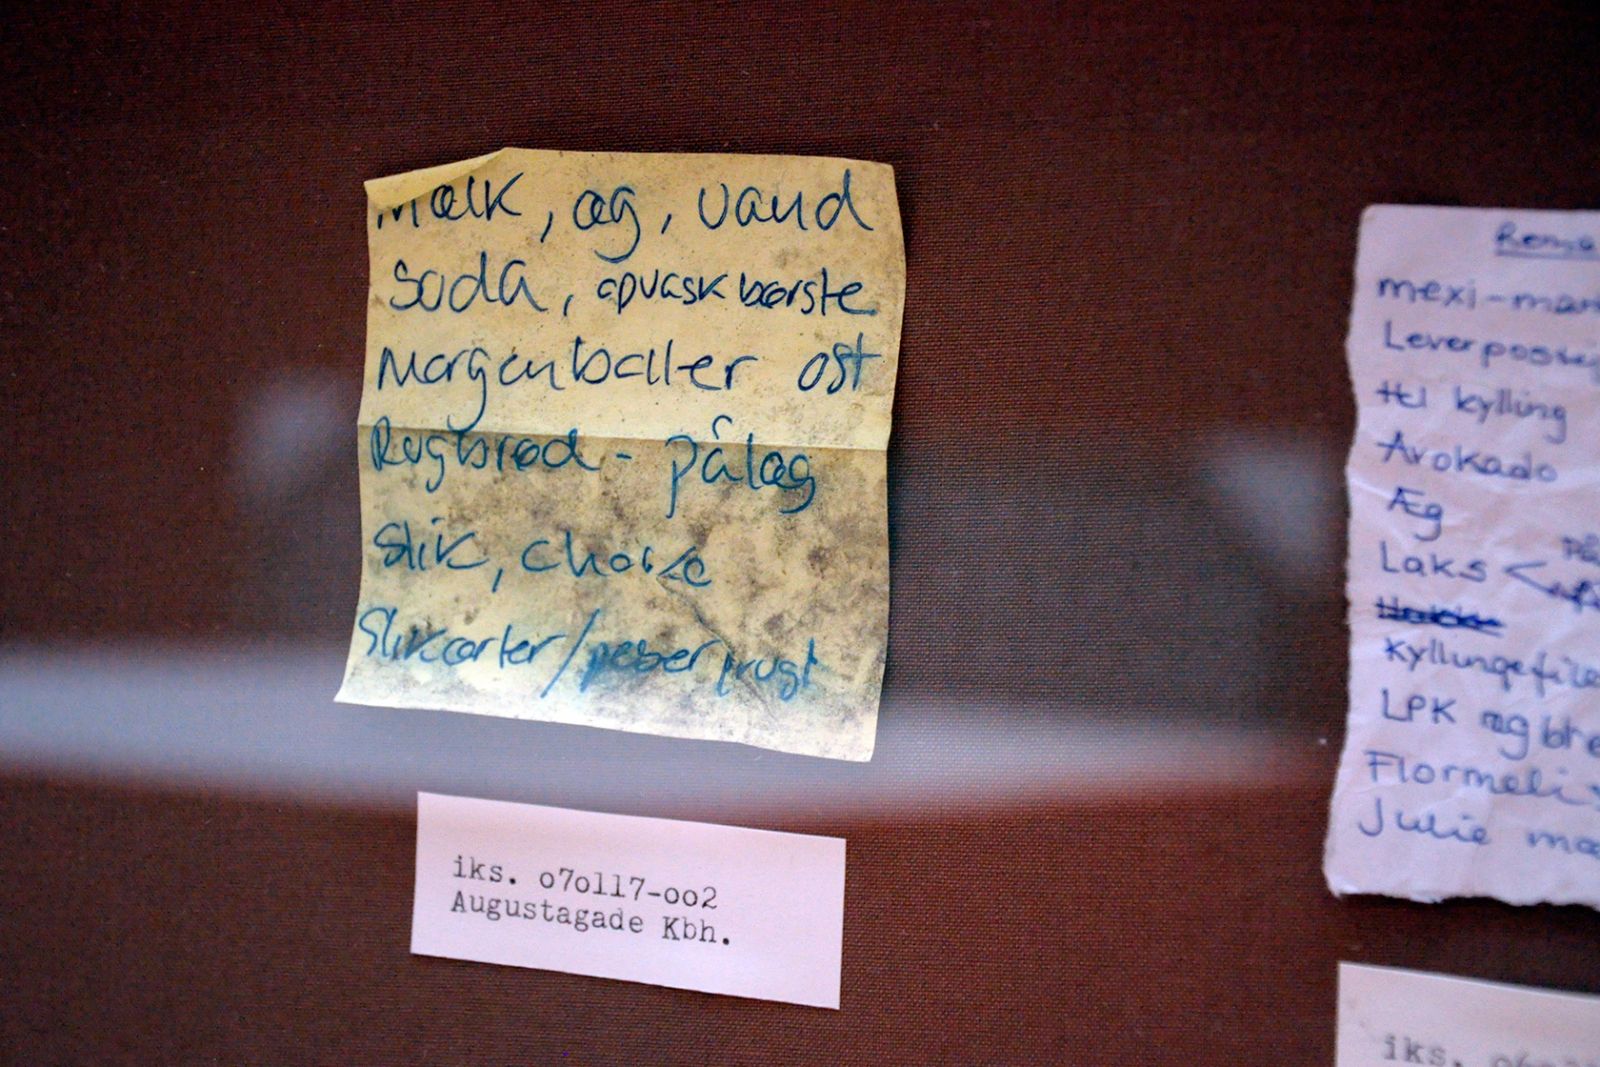 Mælk, æg, vand
soda, opvaskbørste
Morgenboller ost
Rugbrød - pålæg
Slik, choko
Slikærter/peberfrugt
iks. o7o117-oo2
Augustagade Kbh.
Rema
mexi-
Leverpostej
Hel kylling
Avokado
Æg
Laks
Kyllingefile
LPK
Flormelis
Julie
iks.